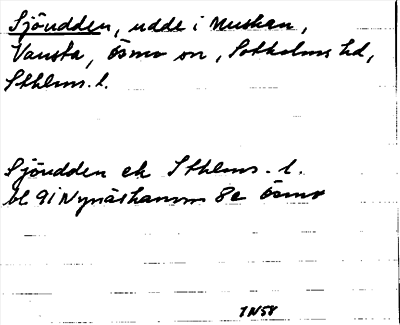 Sjöudden, udde i Muskan,
Vansta, Ösmo sn, Sotholms hd,
Sthlms. l.
Sjöudden ek Sthlms. l.
bl 9i Nynäshamn 8e Ösmo
IN58